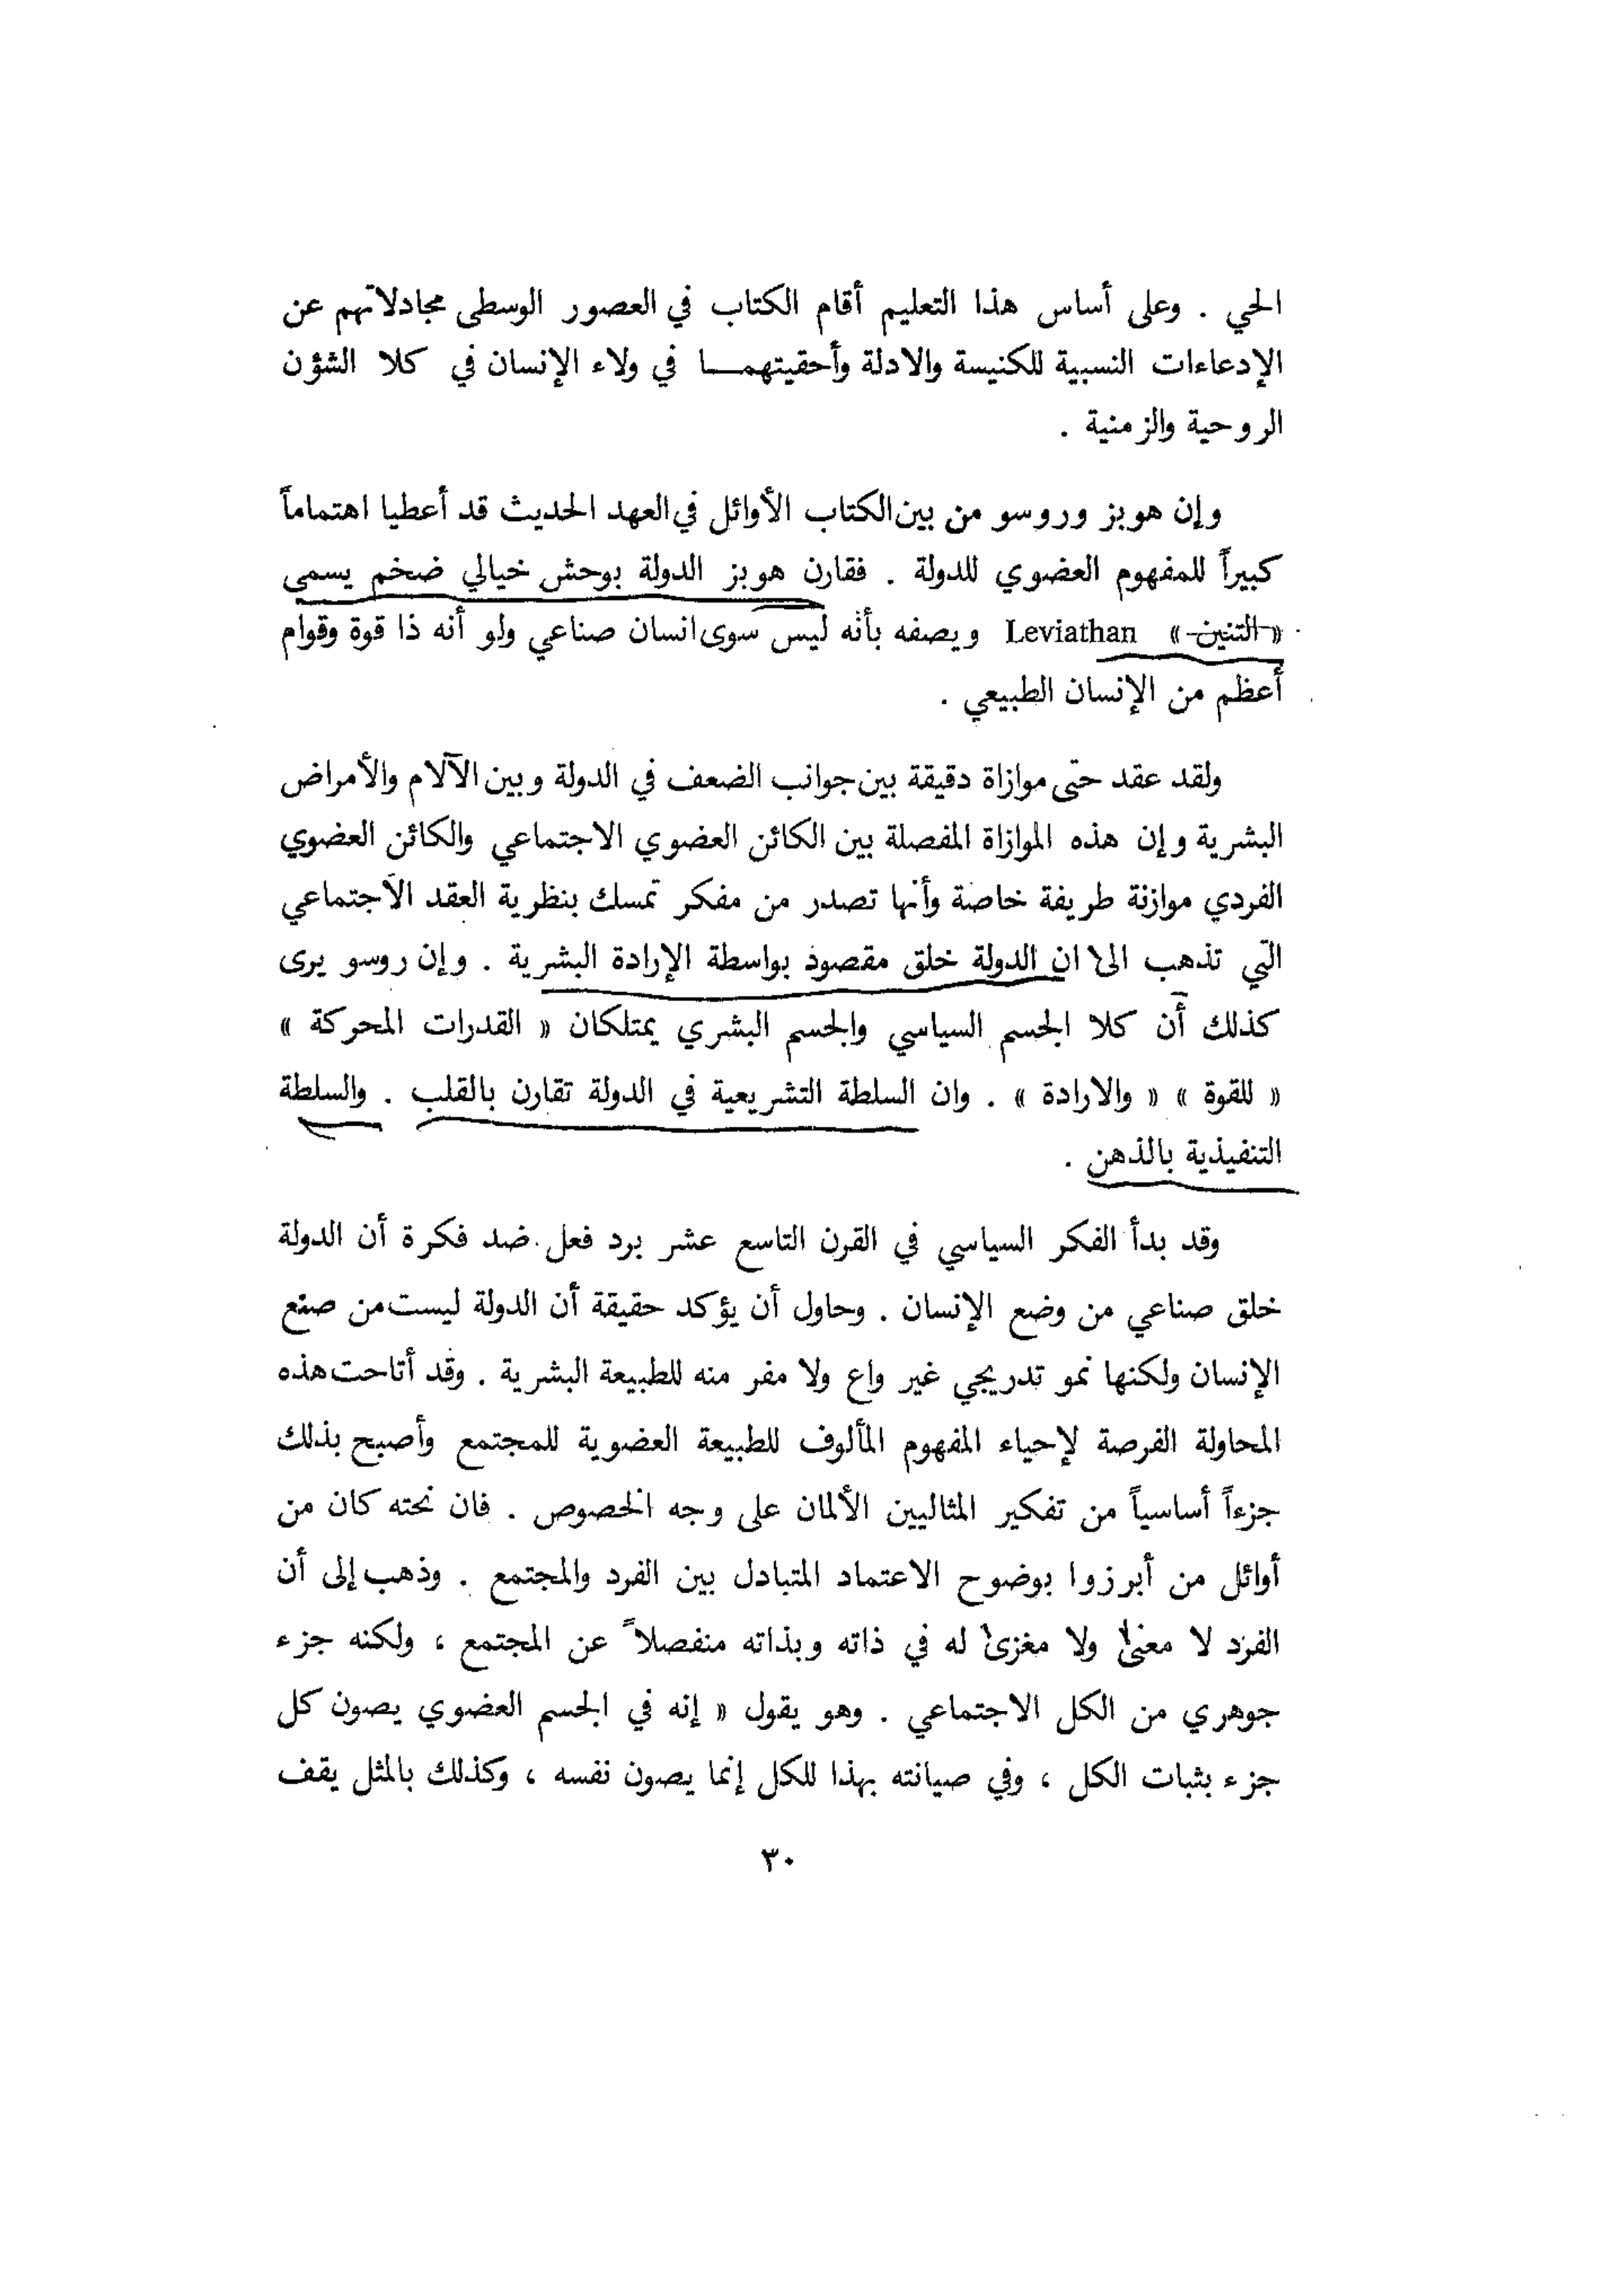 الحي . وعلى أساس هذا التعليم أقام الكتاب في العصور الوسطى مجادلاتهم عن
الإدعاءات النسبية للكنيسة والادلة وأحقيتهمـــا في ولاء الإنسان في كلا الشؤن
الروحية والزمنية .
وإن هوبز وروسو من بين الكتاب الأوائل في العهد الحديث قد أعطيا اهتماماً
كبيراً للمفهوم العضوي للدولة . فقارن هوبز الدولة بوحش خيالي ضخم يسمى
« التنين » Leviathan ويصفه بأنه ليس سوى انسان صناعي ولو أنه ذا قوة وقوام
أعظم من الإنسان الطبيعي .
ولقد عقد حتى موازاة دقيقة بين جوانب الضعف في الدولة وبين الآلام والأمراض
البشرية وإن هذه الموازاة المفصلة بين الكائن العضوي الاجتماعي والكائن العضوي
الفردي موازنة طريفة خاصة وأنها تصدر من مفكر تمسك بنظرية العقد الاجتماعي
التي تذهب الى ان الدولة خلق مقصود بواسطة الإرادة البشرية . وإن روسو يرى
كذلك أن كلا الجسم السياسي والجسم البشري يمتلكان « القدرات المحركة »
« للقوة » « والارادة » . وان السلطة التشريعية في الدولة تقارن بالقلب . والسلطة
التنفيذية بالذهن .
وقد بدأ الفكر السياسي في القرن التاسع عشر برد فعل ضد فكرة أن الدولة
خلق صناعي من وضع الإنسان . وحاول أن يؤكد حقيقة أن الدولة ليست من صنع
الإنسان ولكنها نمو تدريجي غير واع ولا مفر منه للطبيعة البشرية . وقد أتاحت هذه
المحاولة الفرصة لإحياء المفهوم المألوف للطبيعة العضوية للمجتمع وأصبح بذلك
جزءاً أساسياً من تفكير المثاليين الألمان على وجه الخصوص . فان نحته كان من
أوائل من أبرزوا بوضوح الاعتماد المتبادل بين الفرد والمجتمع . وذهب إلى أن
الفرد لا معنى ولا مغزى له في ذاته وبذاته منفصلاً عن المجتمع ، ولكنه جزء
جوهري من الكل الاجتماعي . وهو يقول « إنه في الجسم العضوي يصون كل
جزء بثبات الكل ، وفي صيانته بهذا للكل إنما يصون نفسه ، وكذلك بالمثل يقف
٣٠